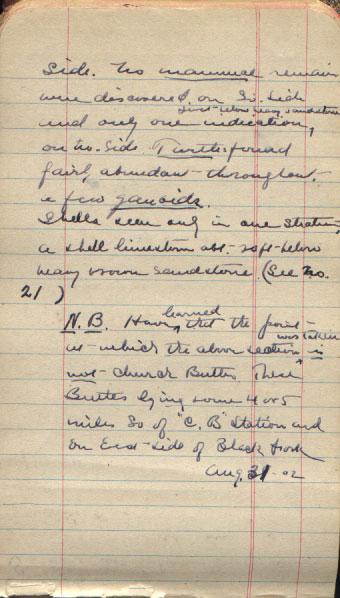 side. No mammal remains
were discovered on So. side
just below heavy sandstone
and only one indication,
on No. side. Turtle found
fairly abundant throughout.
a few ganoids.
Shells seen only in one stratum,
a shell limestone abt. 20ft below
heavy brown sandstone. (See No.
21 )
N.B. Have learned that the point
at which the above section was taken is
not Church Buttes. These
Buttes lying some 4 or 5
miles So of "C. B" Station and
on East side of Black Fork
Aug. 31 - 02